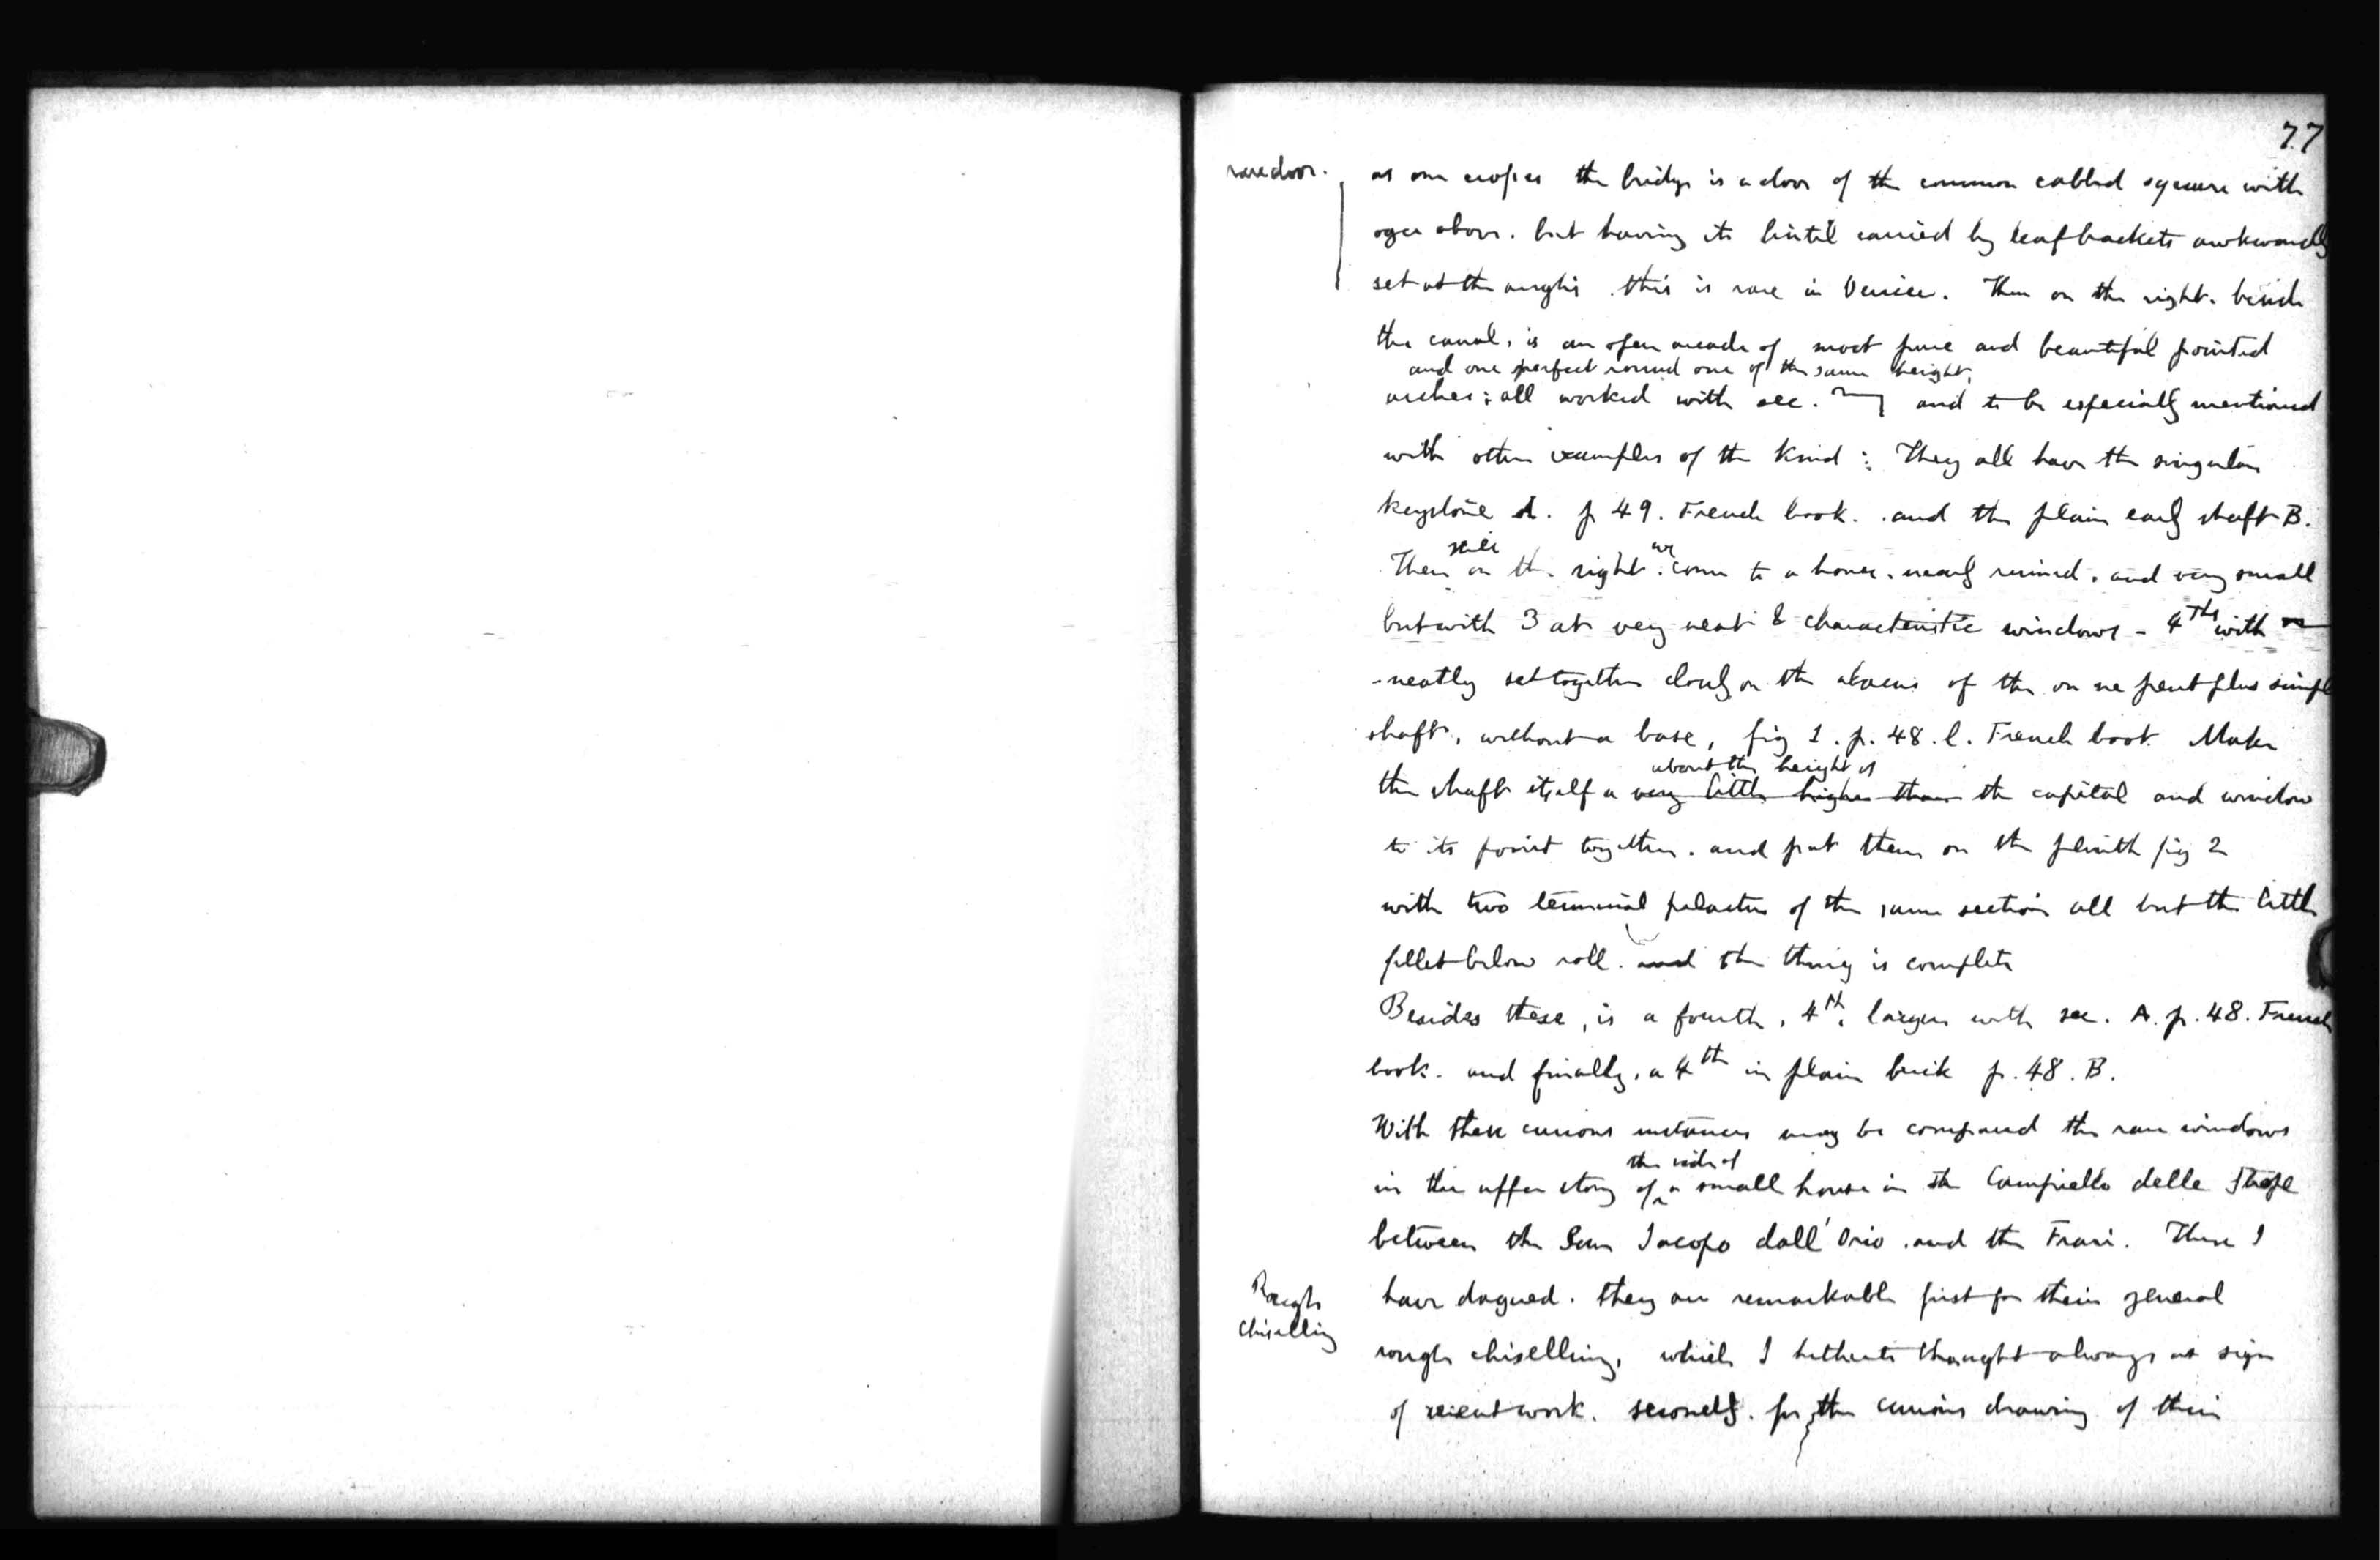 77
rare door.
as one crosses the bridge is a door of the common cabled square with
ogee above. but having its lintel carried by leaf brackets awkwardly
set at the angles. this is rare in Venice. Then on the right. beside
the canal, is an open arcade of most pure and beautiful pointed
and one perfect round one of the same height,
arches: all worked with sec. and to be especially mentioned
with other examples of the kind: They all have the singular
keystone A. p 49. French book. and the plain early shaft B.
still we
Then on the right. come to a house. nearly ruined. and very small
but with 3 at very neat & characteristic windows - 4ths with
- neatly set together closely on the abacus of the on ne peut plus simple
shaft, without a base, fig 1. p. 48. l. French book. Make
about the height of
the shaft itself a very little higher than the capital and window
to its point together. and put them on the plinth fig 2
with two terminal pilasters of the same section all but the little
fillet below roll. and the thing is complete
Besides these, is a fourth, 4th, larger with sec. A. p. 48. French
book. and finally, a 4th in plain brick p. 48. B.
With these curious instances may be compared the rare windows
the side of
in the upper story of a small house in the Campiello delle Strope
between the San Jacopo dall' Orio. and the Frari. These I
Rough
chiselling
have dagued. they are remarkable first for their general
rough chiselling, which I hitherto thought always a sign
of recent work. secondly. for the curious drawing of their